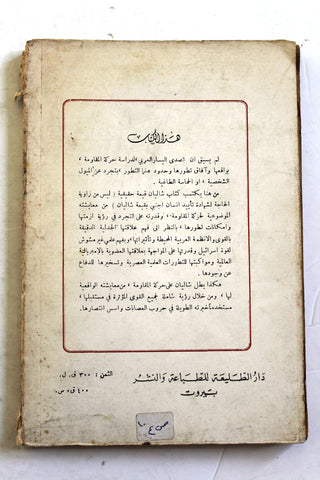 هذا الكتاب
لم يسبق ان تصدى اليسار العربي لدراسة حركة المقاومة ،
بواقعها وآفاق تطورها وحدود هذا التطور ، بتجرد عن الميول
الشخصية ، او الحماسة الطاغية .
من هنا يكتسب كتاب شاليان قيمة حقيقية ( ليس من زاوية
الحاجة لشهادة وتأييد انسان اجنبي بقيمة شاليان ) من معايشته
الموضوعية لحركة المقاومة ، وقدرته على التجرد في رؤية ازمتها
وامكانات تطورها ، بالنظر الى فهم علاقتها الجدلية الدقيقة
بالقوى والانظمة العربية المحيطة وتأثيراتها ، وبفهم علمي غير مشوش
لقوة اسرائيل وقدرتها على المواجهة بعلاقتها العضوية بالامبريالية
العالمية ومواكبتها للتطورات العلمية العصرية وتسخيرها للدفاع
عن وجودها .
هكذا يطل شاليان على حركة المقاومة ، من معايشته الواقعية
لها ، ومن خلال رؤية شاملة لجميع القوى المؤثرة في مستقبلها ،
مستخدما خبرته الطويلة في حروب العصابات واسس انتصارها.
دار الطليعة للطباعة والنشر
بيروت
الثمن : ٣٠٠ ق. ل.
٤٠٠ ق. س.